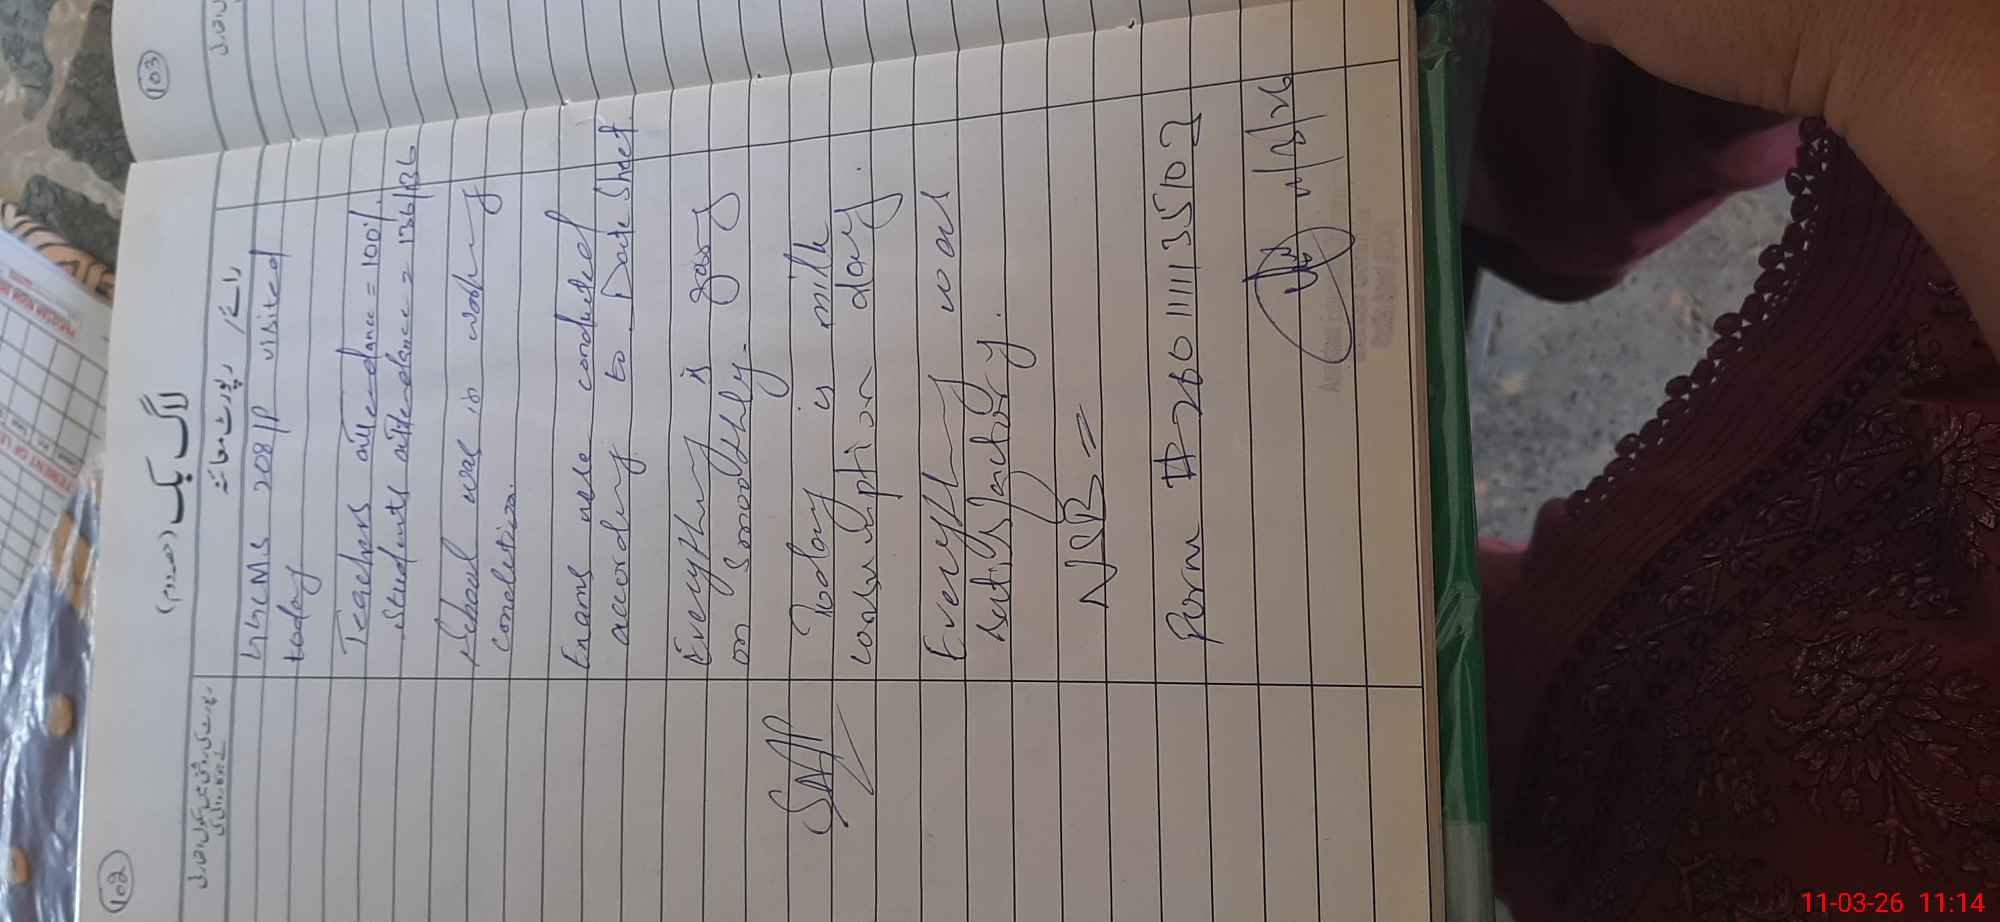 103
102
لاگ بک (حصہ دوم)
رائے / رپورٹ معائنہ
GGCMS 208/P visited
today
Teachers attendance = 100%
Students attendance = 136/136
School was in working
condition.
Exams were conducted
according to Date Sheet.
Everything is going
on Smoothly.
Today is milk
consumption day.
Everything was
satisfactory.
NSB =
Form # 2601111135102
11/3/26
11-03-26 11:14